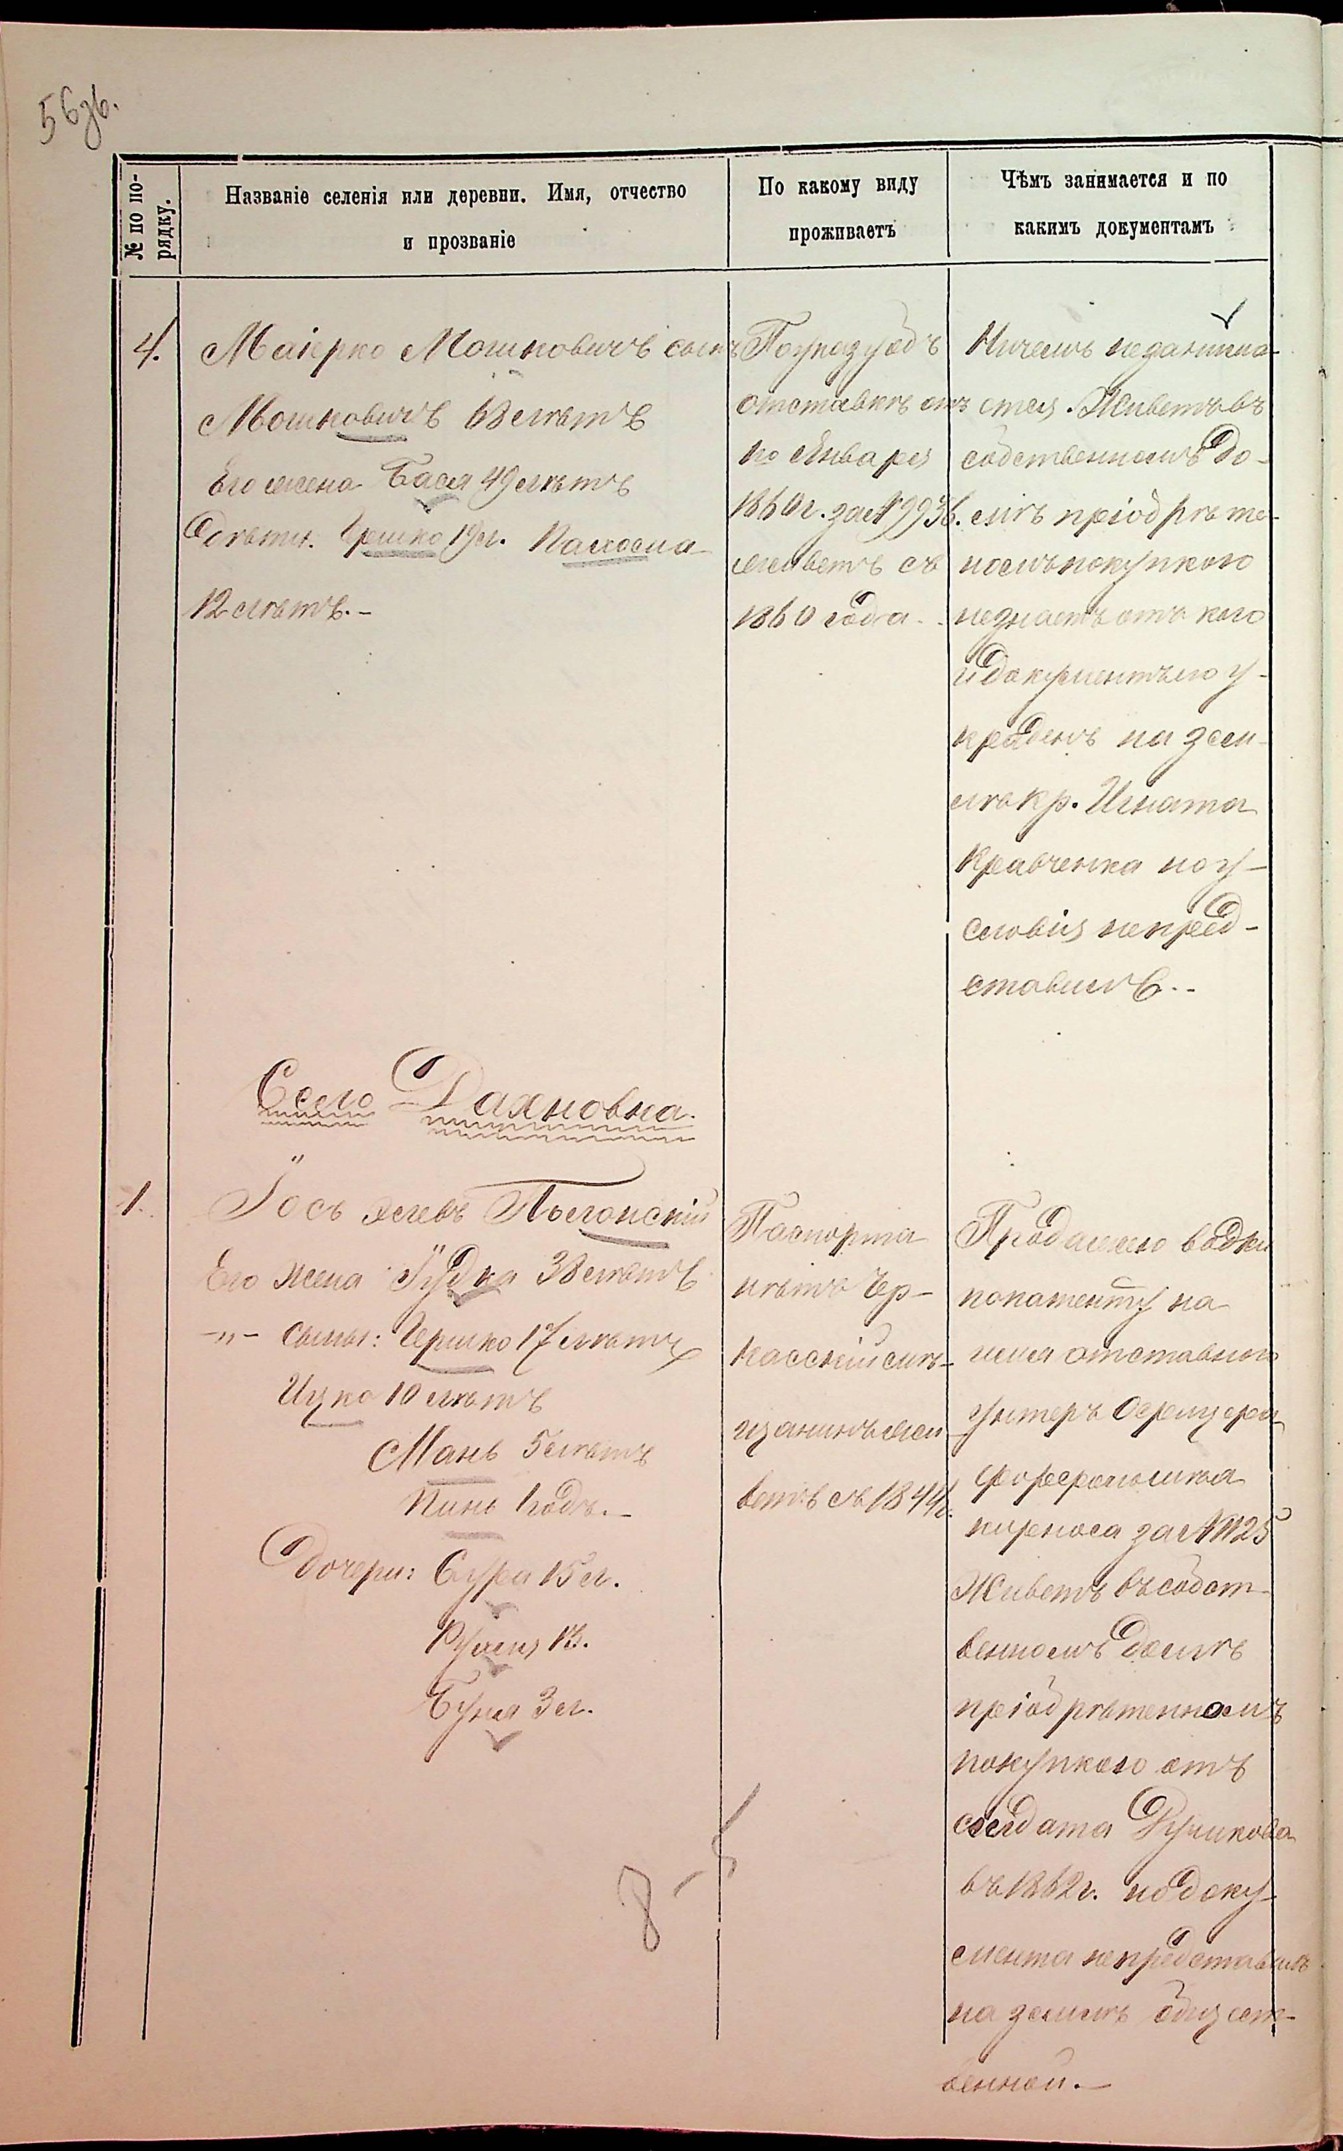 56 об.
№ по по-
рядку.
Названіе селенія или деревни. Имя, отчество
и прозваніе
По какому виду
проживаетъ
Чѣмъ занимается и по
какимъ документамъ
4.
Маіерко Мошковичъ сынъ
Мошковичъ 63 лѣтъ
Его жена Бася 49 лѣтъ
Дѣти. Гершко 19 л.
12 лѣтъ. –
По указу объ
отставкѣ отъ
Января
1860 г. за №
живетъ съ
1860 года. –
Ничемъ незанима-
ется. Живетъ въ
собственномъ до-
мѣ пріобрѣте-
номъ покупкою
незнаетъ отъ кого
и документъ его у-
краденъ на зем-
лѣ кр. Игната
Кравченка но у-
словія непред-
ставилъ. –
Село Дахновка.
1.
Іось
Его жена Юдка 38 лѣтъ
-„- сыны: Гершко 17 лѣтъ
Ицко 10 лѣтъ
Мань 5 лѣтъ
Пинь 1 годъ. –
Дочери: Сура 15 л.
13.
Буня 3 л.
Паспорта
нѣтъ Чер-
касскій мѣ-
щанинъ жи-
ветъ съ 1844 г.
Продажею водки
по патенту на
имя отставного
унтеръ Офицера
за № 1125
Живетъ въ собст-
венномъ домѣ
пріобрѣтенномъ
покупкою отъ
солдата
въ 1862 г. но доку-
мента непредставилъ
на землѣ общест-
венной. –
8 – 5